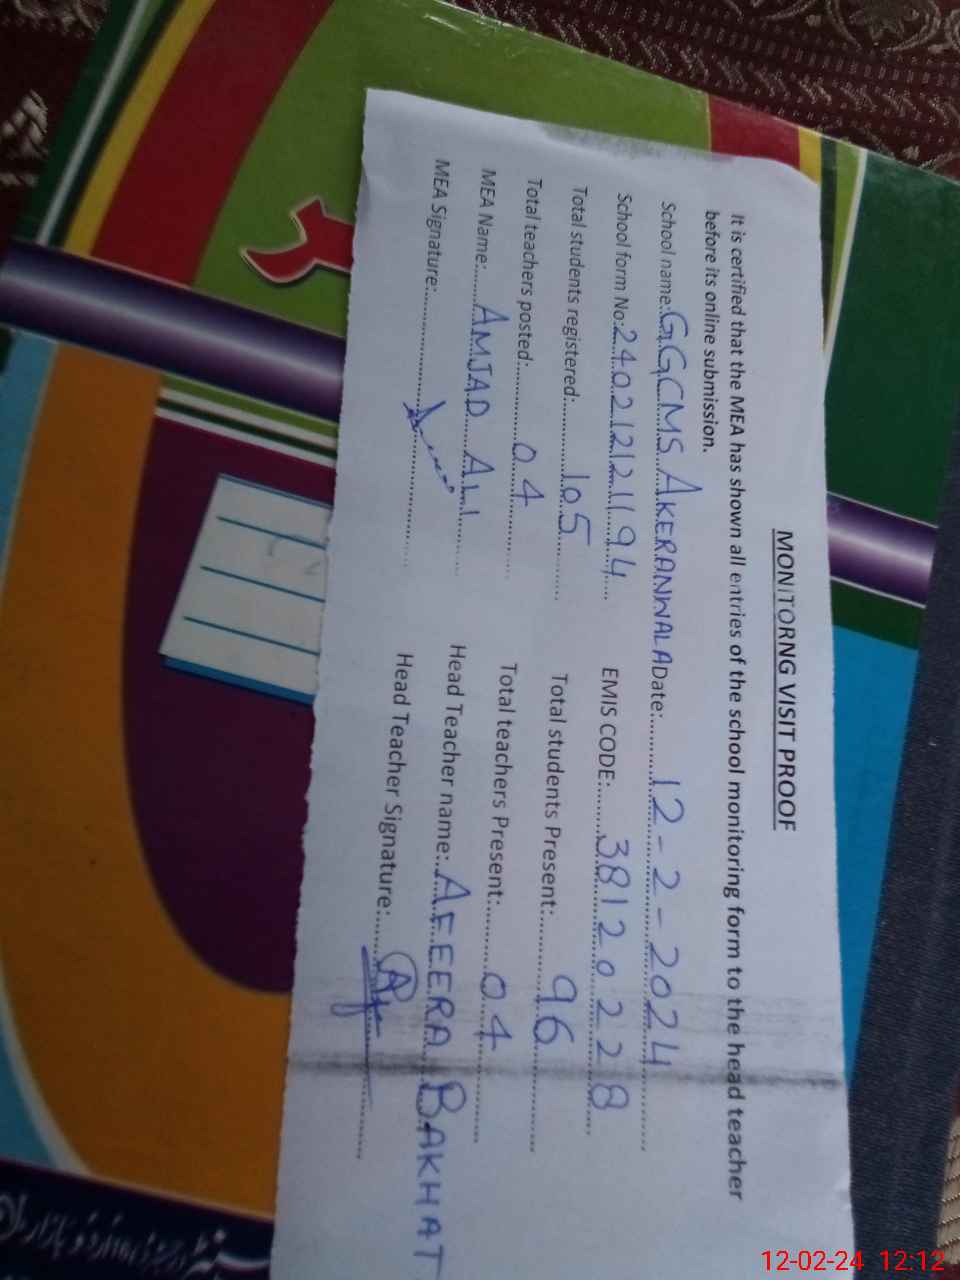 MONITORNG VISIT PROOF
It is certified that the MEA has shown all entries of the school monitoring form to the head teacher
before its online submission.
School name: GGCMS AKERANWALA Date: 12-2-2024
School form No: 240212121194 EMIS CODE: 38120228
Total students registered: 105 Total students Present: 96
Total teachers posted: 04 Total teachers Present: 04
MEA Name: AMJAD ALI Head Teacher name: AEEERA BAKHAT
MEA Signature: Head Teacher Signature:
12-02-24 12:12